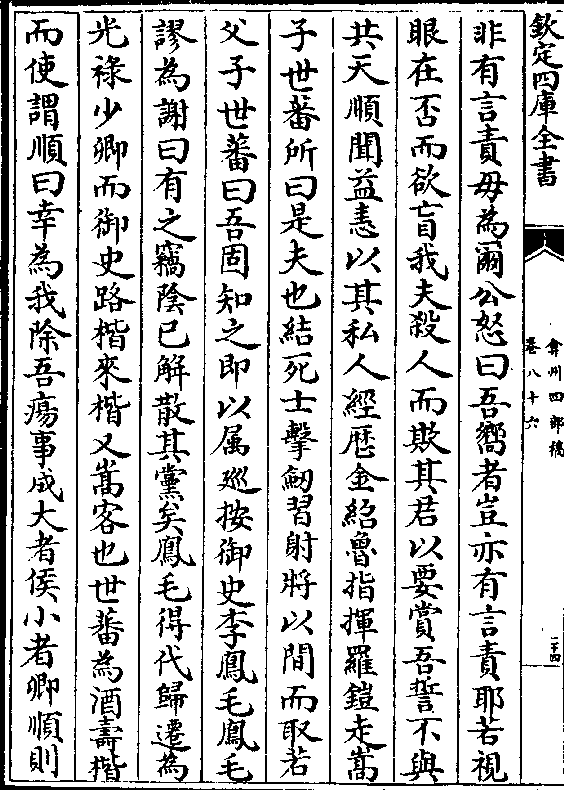 欽定四庫全書
弇州四部稿
卷八十六
二十四
非有言責毋為爾公怒曰吾嚮者豈亦有言責耶若視
眼在否而欲盲我夫殺人而欺其君以要賞吾誓不與
共天順聞益恚以其私人經歷金紹魯指揮羅鎧走嵩
子世蕃所曰是夫也結死士擊劒習射將以間而取若
父子世蕃曰吾固知之即以属廵按御史李鳳毛鳳毛
謬為謝曰有之竊陰已解散其黨矣鳳毛得代歸遷為
光禄少卿而御史路楷來楷又嵩客也世蕃為酒壽楷
而使謂順曰幸為我除吾瘍事成大者侯小者卿順則